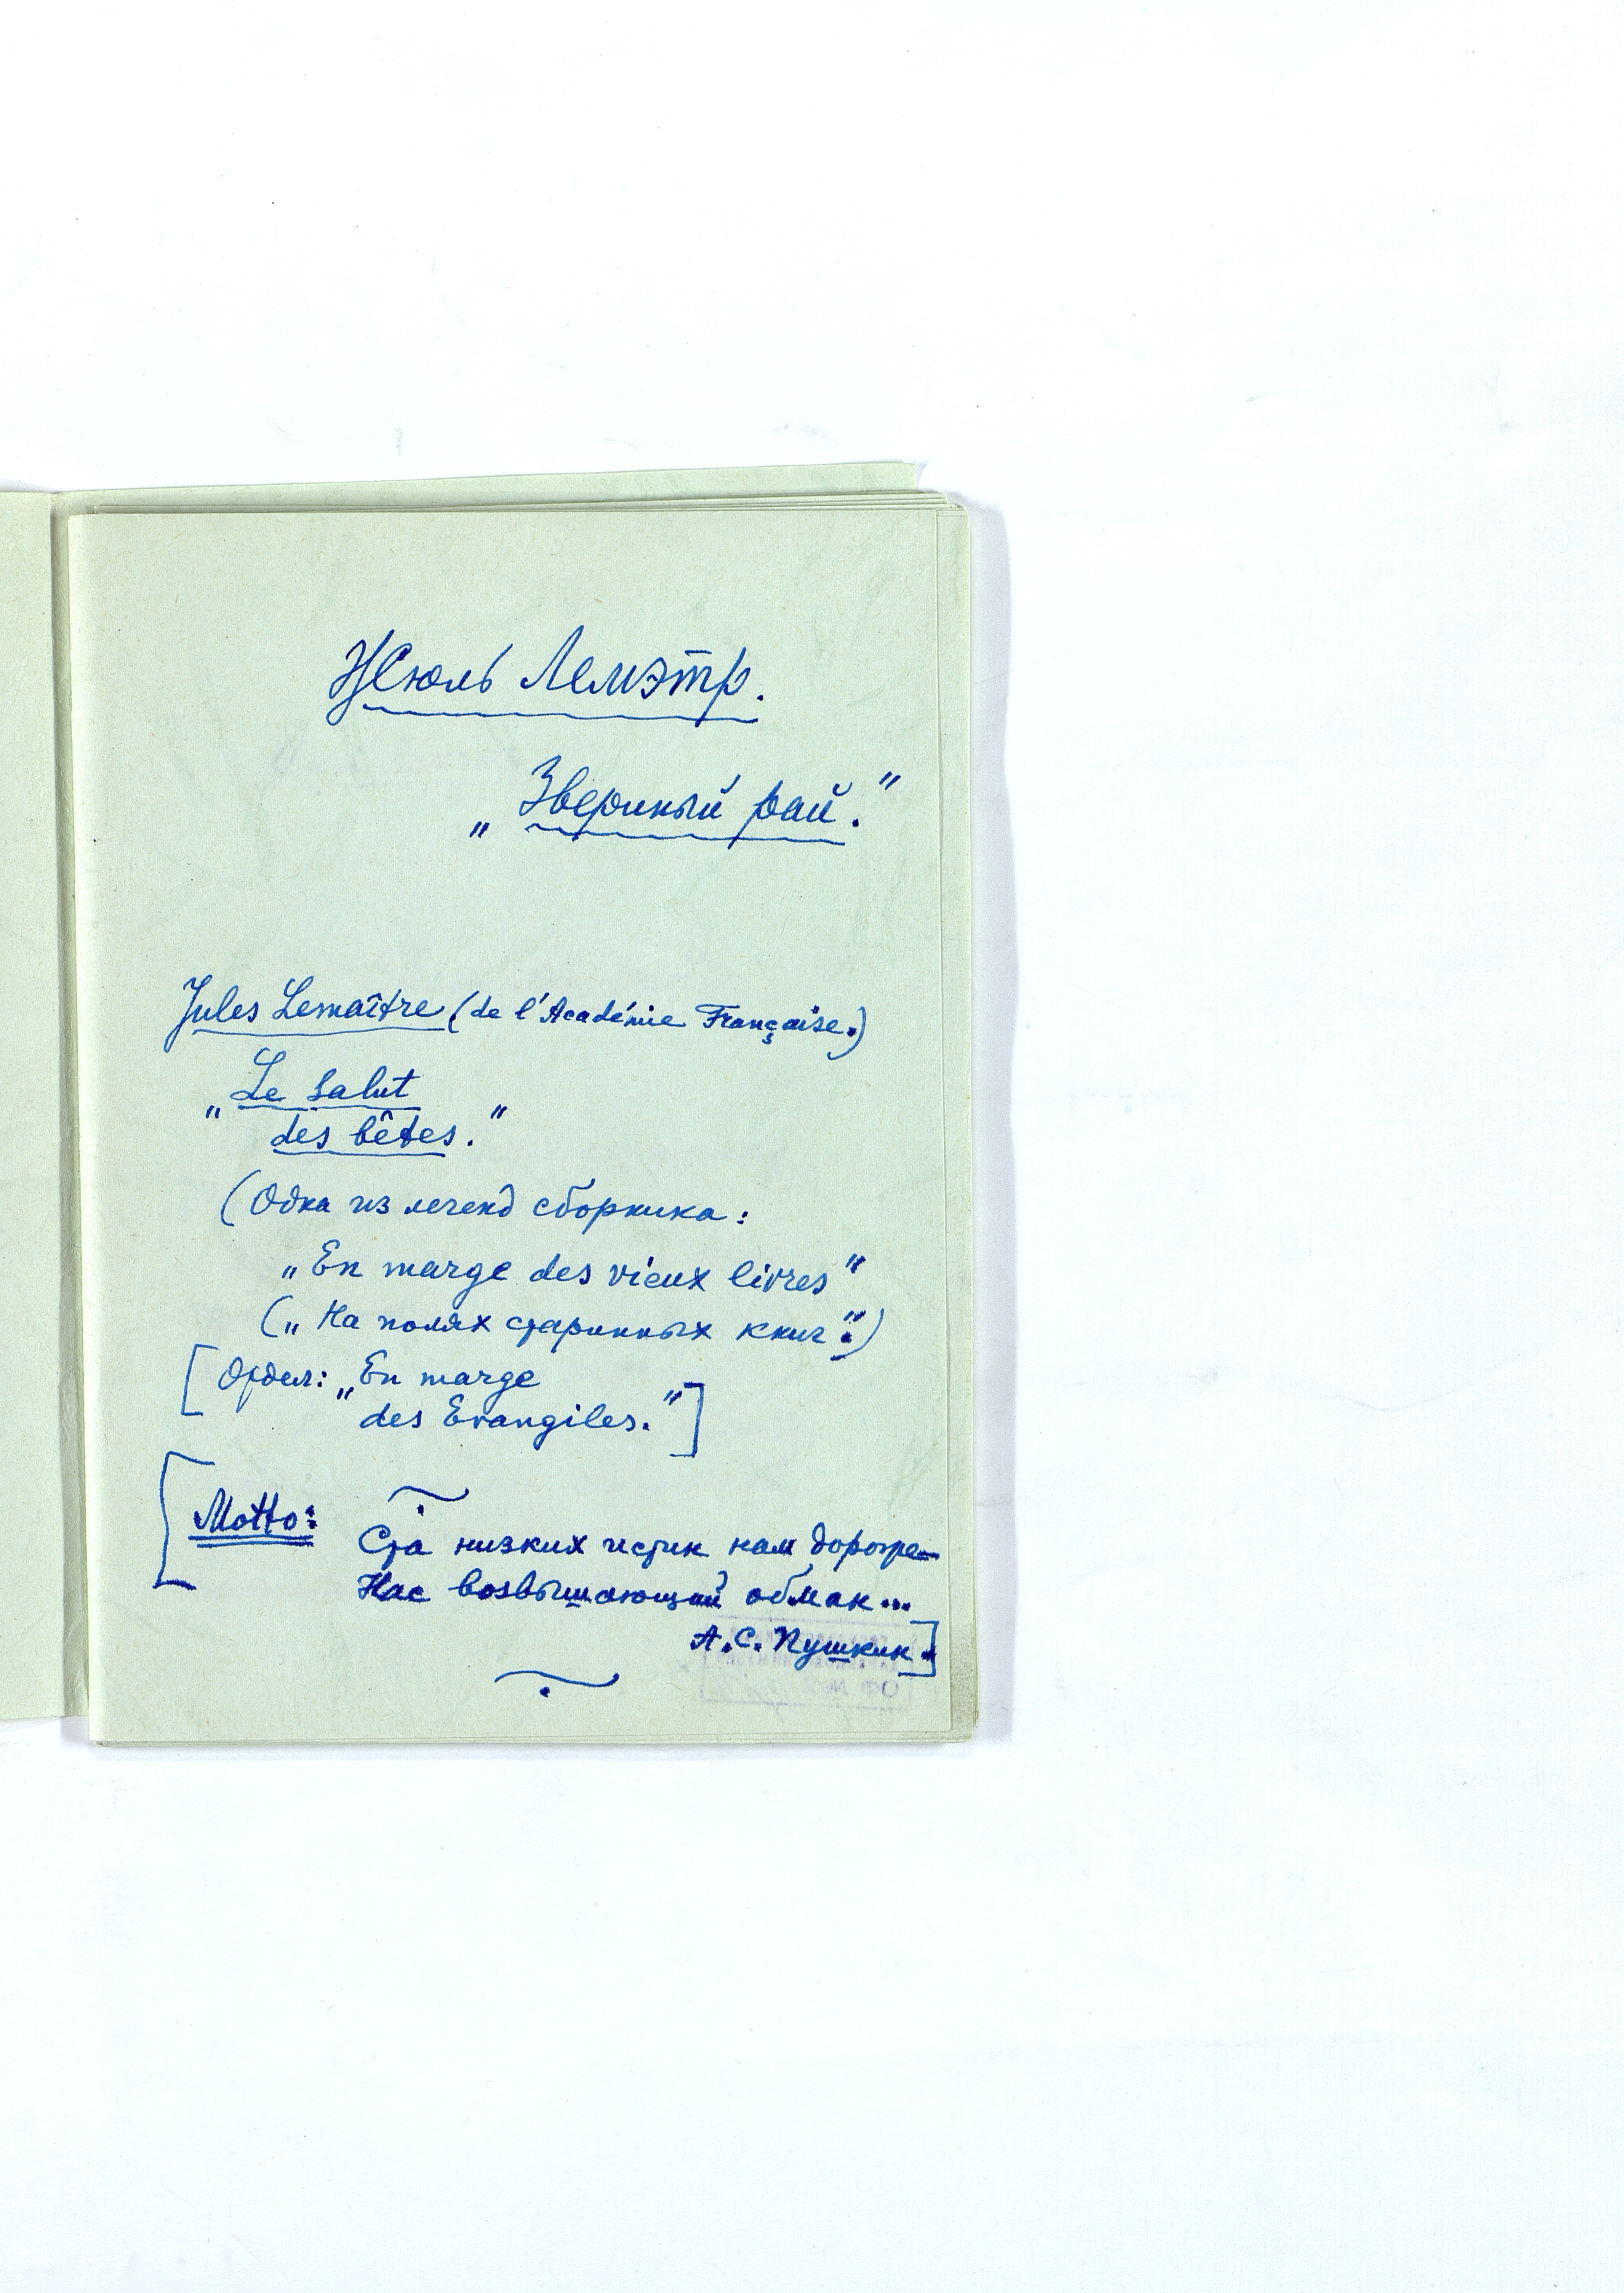 Жюль Лемэтр.
„Звериный рай."
Jules Lemaître (de l'Académie Française.)
„Le Salut
des bêtes."
(Одна из легенд сборника:
„En marge des vieux livres"
(„На полях старинных книг".)
[Отдел: „En marge
des Evangiles."]
[Motto:
Ста низких истин нам дороже
Нас возвышающий обман...
А.С. Пушкин.]